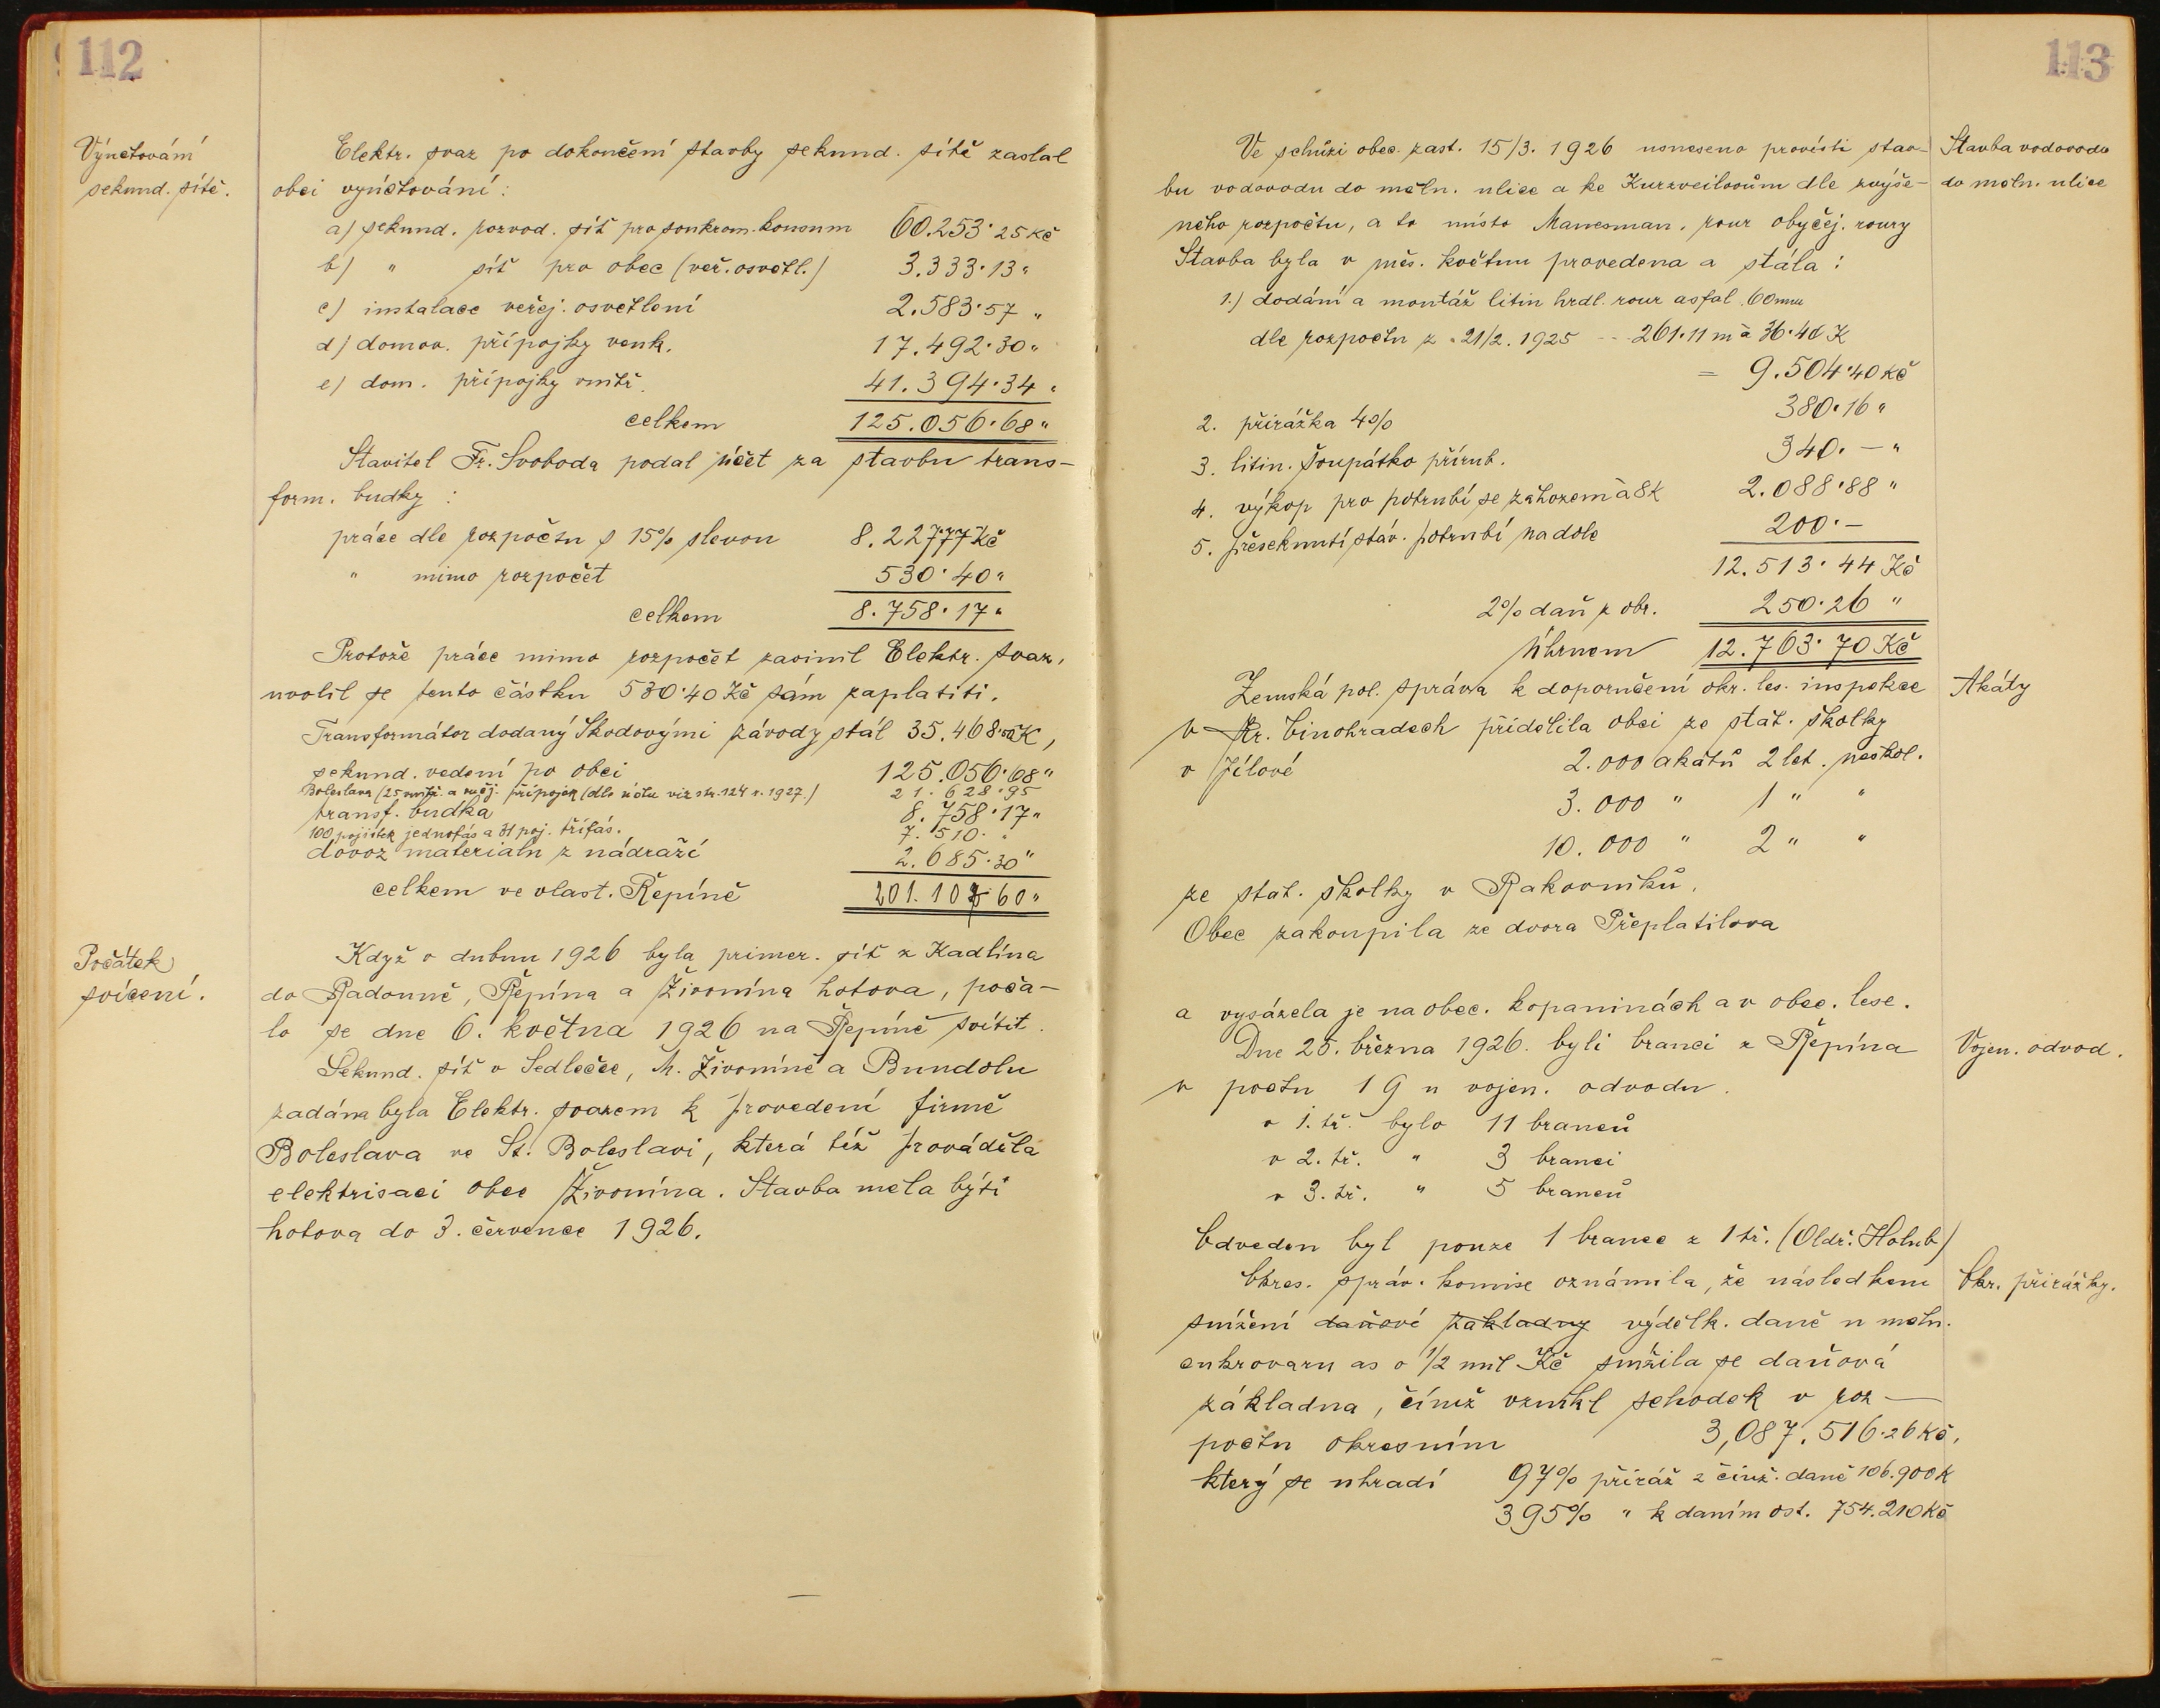 112
Výúčtování
sekund. sítě.
Elektr. svaz po dokončení stavby sekund. sítě zaslal
obci vyúčtování:
a) sekund. rozvod. síť pro soukrom. konsum 60.253·25 Kč
b) " síť pro obec (veř. osvětl.) 3.333·13 "
c) instalace veřej. osvětlení 2.583·57 "
d) domov. přípojky venk. 17.492·30 "
e) dom. přípojky vnitř. 41.394·34 "
celkem 125.056·68 "
Stavitel Fr. Svoboda podal účet za stavbu trans-
form. budky :
práce dle rozpočtu s 15% slevou 8.227·77 Kč
" mimo rozpočet 530·40 "
celkem 8.758·17 "
Protože práce mimo rozpočet zavinil Elektr. svaz,
uvolil se tento částku 530·40 Kč sám zaplatiti.
Transformátor dodaný Škodovými závody stál 35.468· K,
sekund. vedení po obci 125.056·68 "
Boleslava (25 vnitř. a veřej. přípojek (dle účtu viz str. 124 r. 1927.) 21.628·95
transf. budka 8.758·17 "
100 pojistek jednofás a 31 poj. třífás. 7.510· "
dovoz materialu z nádraží 2.685·30 "
celkem ve vlast. Řepíně 201.107·60 "
Počátek
svícení.
Když v dubnu 1926 byla primer. síť z Kadlína
do Radouně, Řepína a Živonína hotova, poča-
lo se dne 6. května 1926 na Řepíně svítit.
Sekund. síť v Sedlečce, M. Živoníně a Bundolu
zadána byla Elektr. svazem k provedení firmě
Boleslava ve St. Boleslavi, která též prováděla
elektrisaci obce Živonína. Stavba měla býti
hotova do 3. července 1926.
113
Ve schůzi obec. zast. 15/3. 1926 usneseno provésti stav-
bu vodovodu do měln. ulice a ke Kurzveilovům dle zvýše-
ného rozpočtu, a to místo Manesman. rour obyčej. roury
Stavba byla v měs. květnu provedena a stála :
1.) dodání a montáž litin hrdl. rour asfal. 60 mm
dle rozpočtu z 21/2. 1925 -- 261·11 m à 36·40 K
= 9.504·40 Kč
2. přirážka 4% 380·16 "
3. litin. šoupátko přírub. 340·— "
4. výkop pro potrubí se záhozem à 8 K 2.088·88 "
5. přeseknutí stáv. potrubí na dole 200·—
12.513·44 Kč
2% daň z obr. 250·26 "
Úhrnem 12.763·70 Kč
Stavba vodovodu
do měln. ulice
Zemská pol. správa k doporučení okr. les. inspekce
v Kr. Vinohradech přidělila obci ze stát. školky
v Jílové 2.000 akátů 2 let. neškol.
3.000 " 1 " "
10.000 " 2 " "
ze stát. školky v Rakovníku.
Obec zakoupila ze dvora Přeplatilova
a vysázela je na obec. kopaninách a v obec. lese.
Akáty
Dne 25. března 1926. byli branci z Řepína
v počtu 19 u vojen. odvodu.
v 1. tř. bylo 11 branců
v 2. tř. " 3 branci
v 3. tř. " 5 branců
Odveden byl pouze 1 branec z 1 tř. (Oldř. Holub)
Vojen. odvod.
Okres. správ. komise oznámila, že následkem
snížení daňové základny výdělk. daně u měln.
cukrovaru as o 1/2 mil Kč snížila se daňová
základna, čímž vznikl schodek v roz-
počtu okresním 3,087.516·26 Kč,
který se uhradí 97% přiráž z činž. daně 106.900 K
395% " k daním ost. 754.210 Kč
Okr. přirážky.